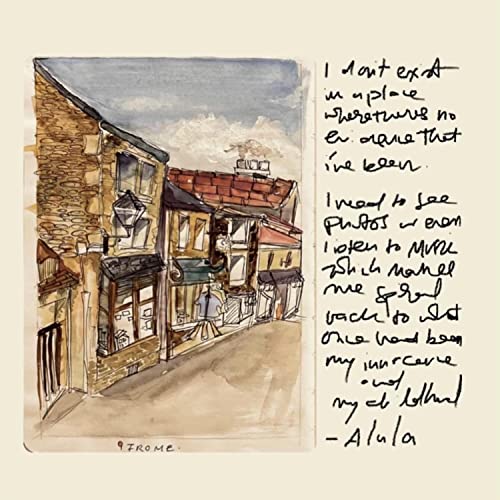 I don't exist
in a place
where theres no
evidence that
i've been.
I need to see
photos or even
listen to music
which makes
me
back to what
once had been
my innocence
and
my childhood
- Alula
FROME.